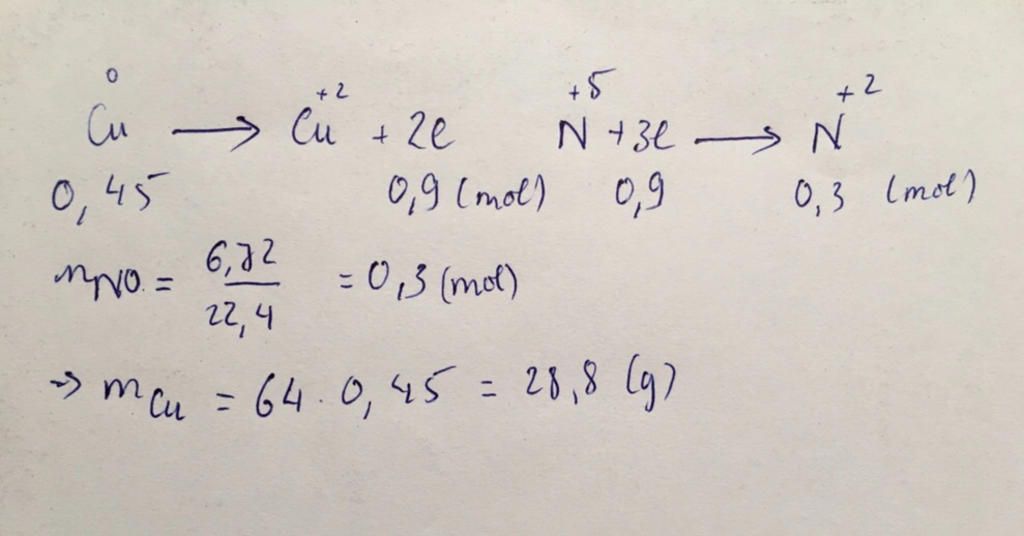 Cu⁰ → Cu⁺² + 2e   N⁺⁵ + 3e → N⁺²
0,45   0,9 (mol)   0,9   0,3 (mol)
nNO = 6,72 / 22,4 = 0,3 (mol)
→ mCu = 64 . 0,45 = 28,8 (g)